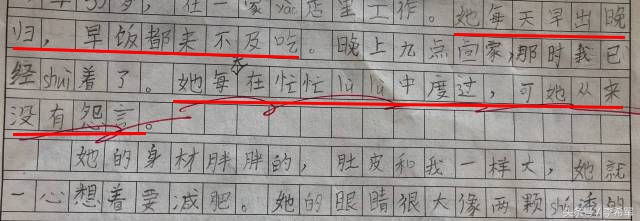 多岁，在一家yao店里工作。她每天早出晚
归，早饭都来不及吃。晚上九点回家，那时我已
经shui着了。她每天在忙忙lu lu中度过，可她从来
没有怨言。
她的身材胖胖的，肚皮和我一样大，她就
一心想着要减肥。她的眼睛很大像两颗